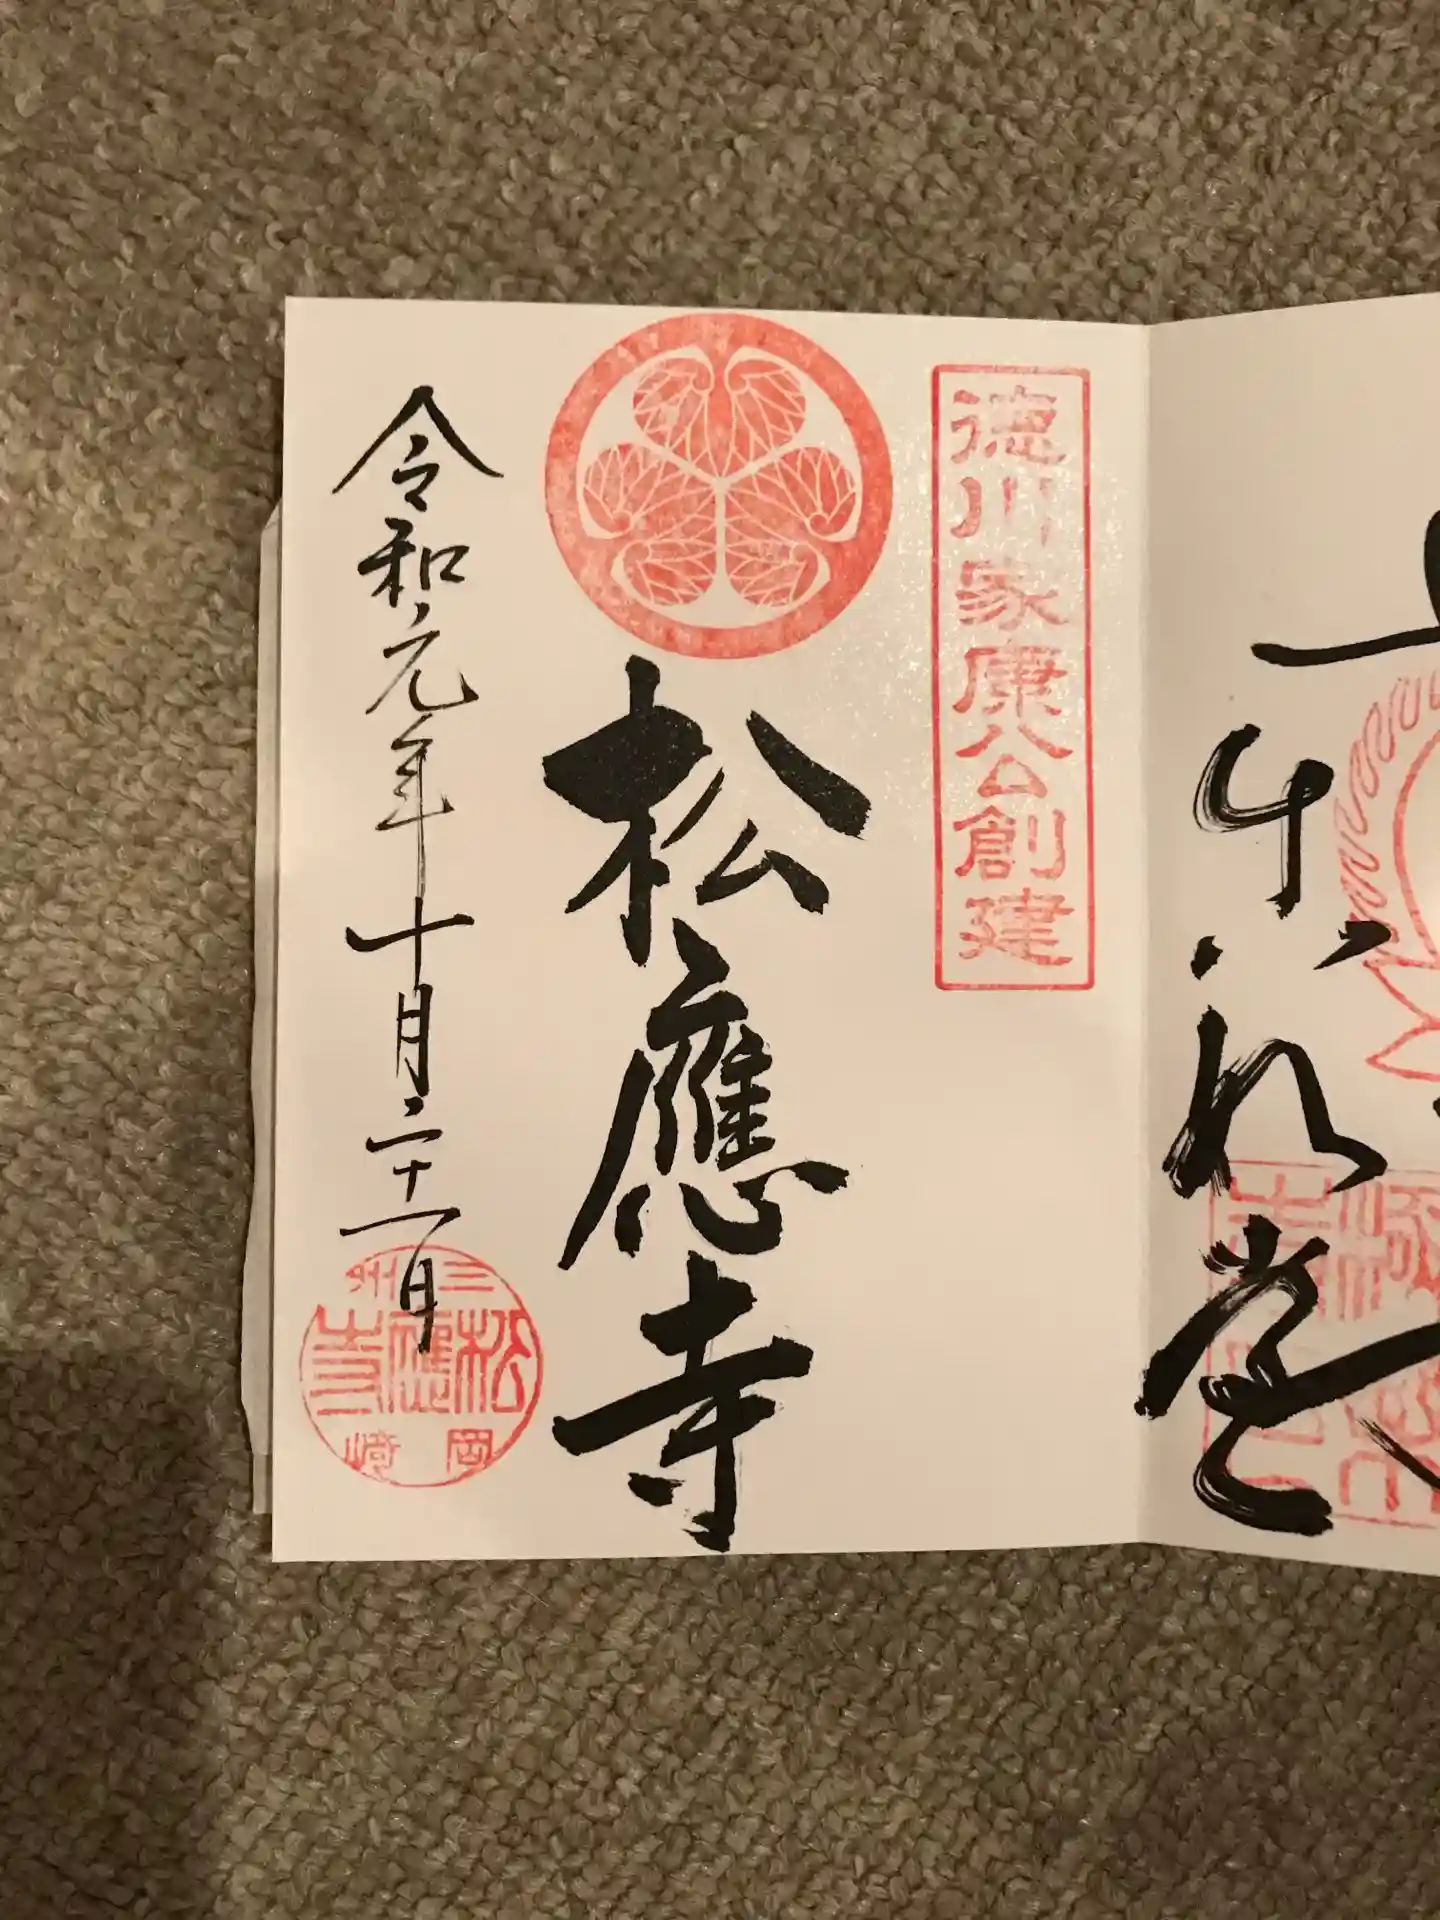 堂
徳川家康公創建
松應寺
令和元年十月二十一日
三州
松應寺
岡崎